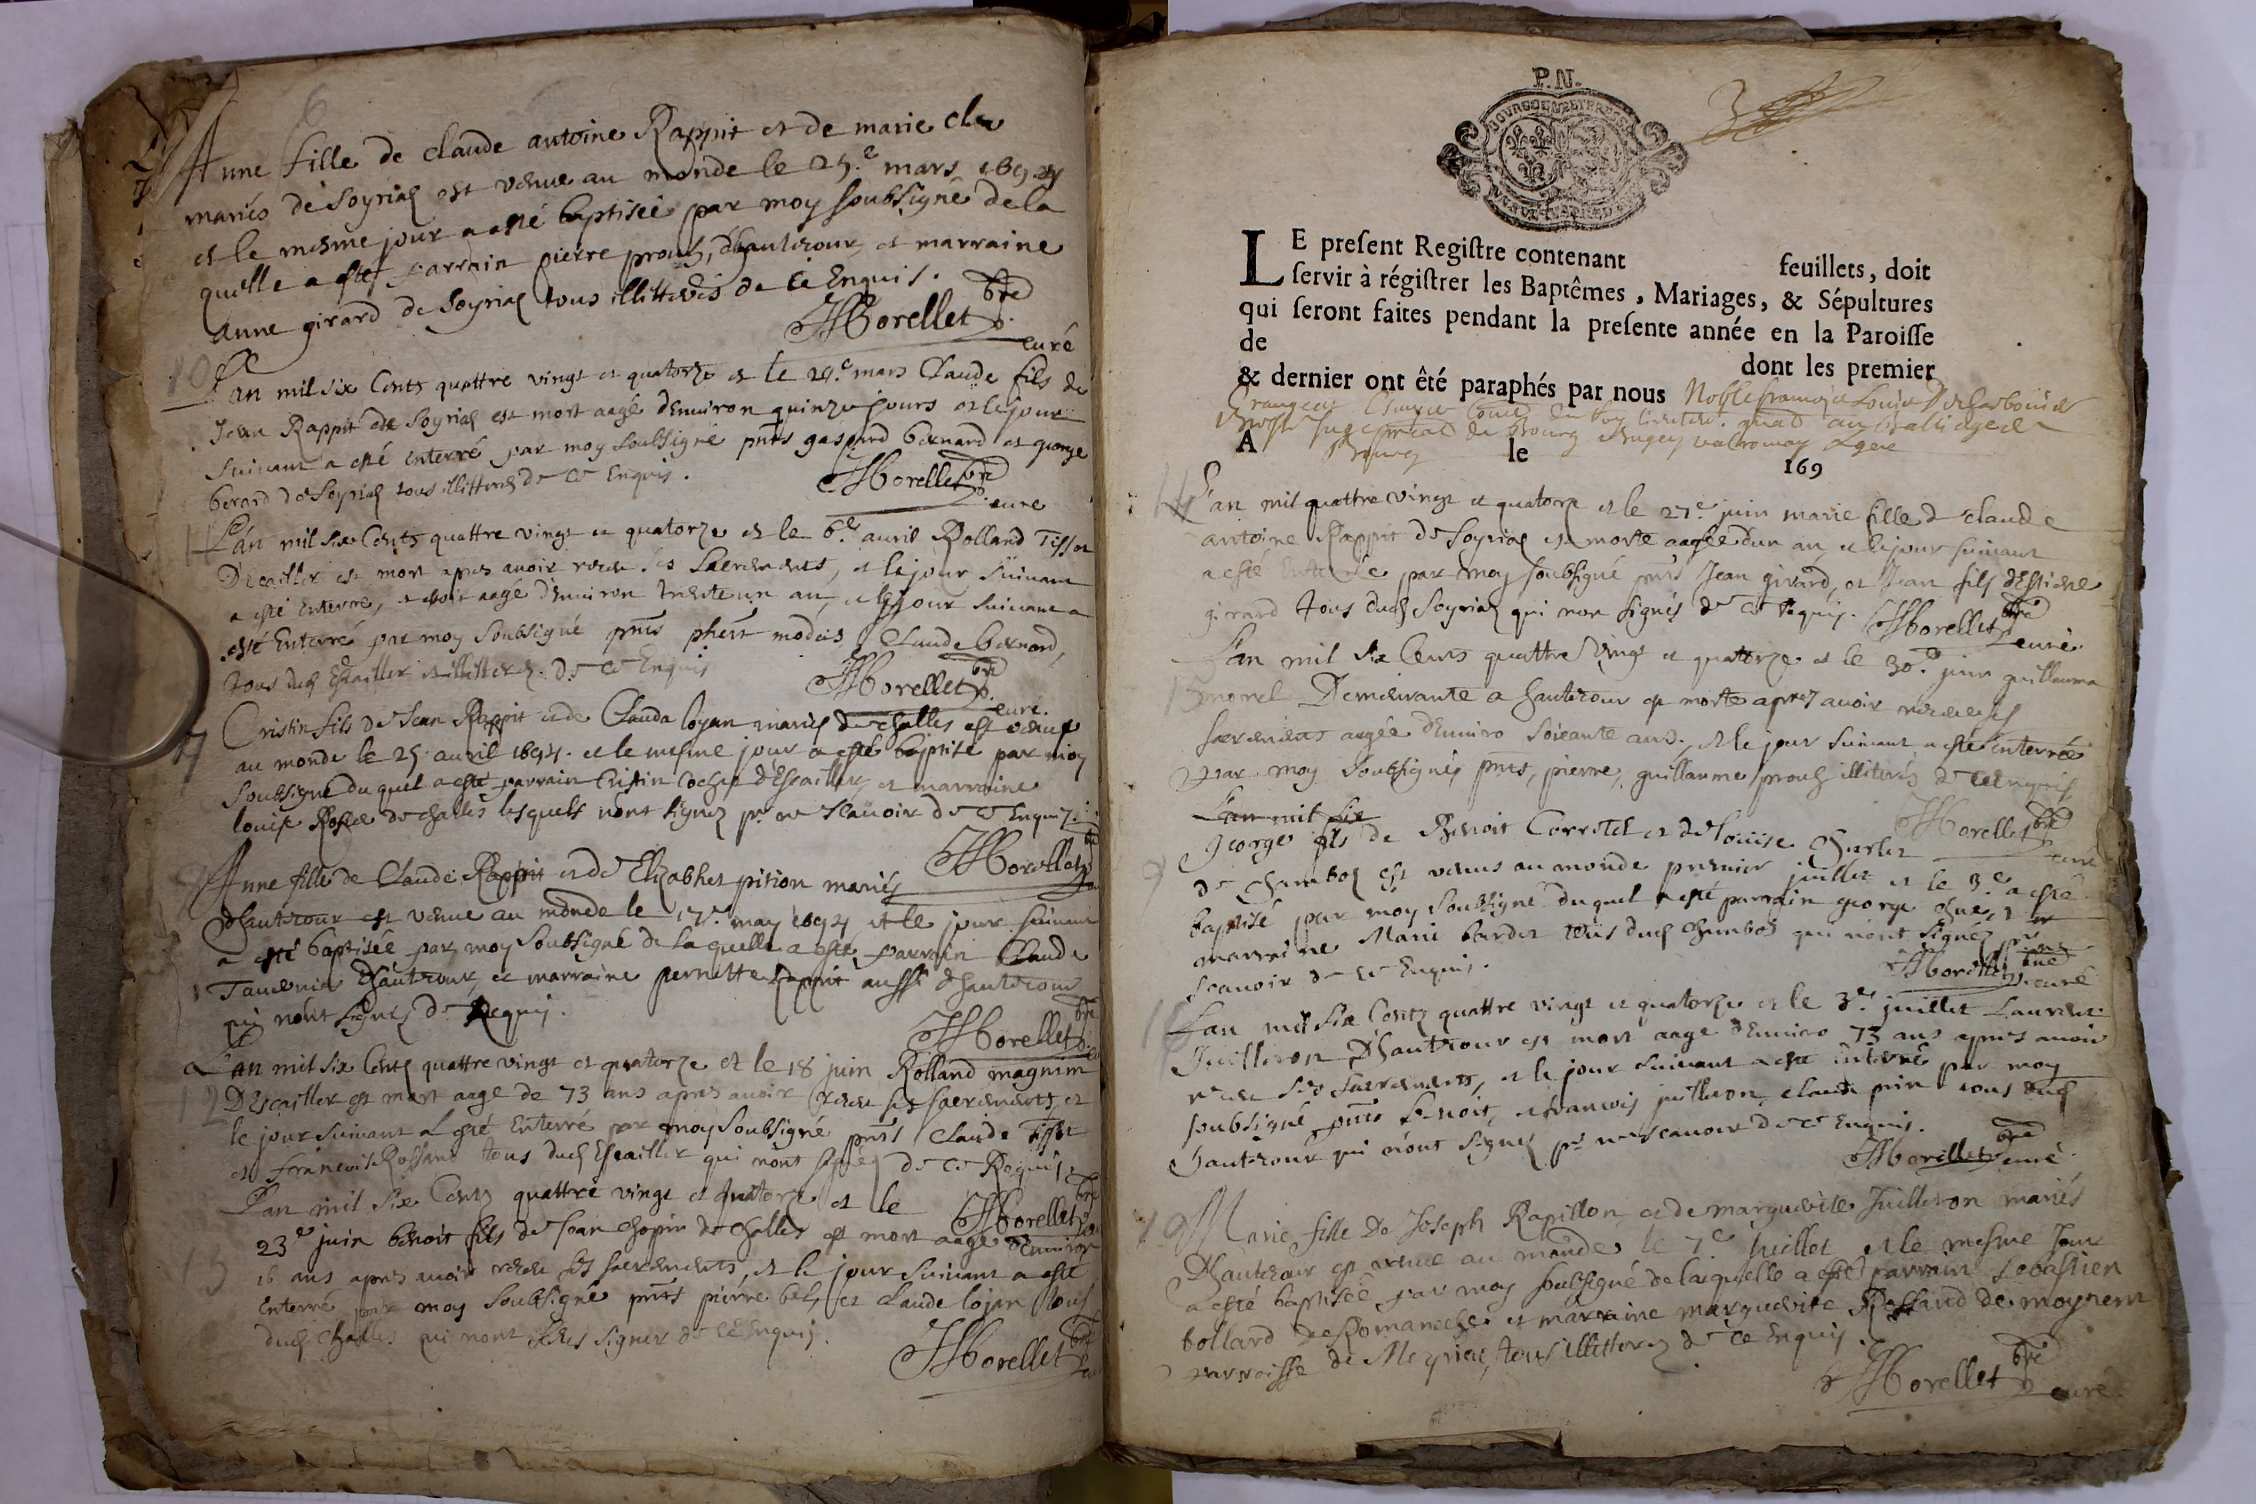 Anne fille de claude antoine Rappit et de marie
mariés de Soyria est venue au monde le 25.e mars 1694
et le mesme jour a esté baptisée par moy soubsigné de la
quelle a esté parrain pierre proust, dhautecour, et marraine
Anne girard de Soyria tous illitterés de ce Enquis.
JMorellet pbre
curé
10
L'an mil six Cents quattre vingt et quatorze et le 29.e mars Claude fils de
Jean Rappit de Soyria est mort aagé d'environ quinze jours et le jour
suivant a esté enterré par moy soubsigné pnts gaspard bernard et george
berard de Soyria tous illitterés de ce Enquis.
JMorellet pbre
curé
11
L'an mil six Cents quattre vingt et quatorze et le 6.e avril Rolland Tissot
Descaillier est mort apres avoir receu ses Sacrements, et le jour suivant
a esté enterré, aagé d'environ trente un an, et le jour suivant a
esté Enterré par moy Soubsigné pnts modas, Claude bernard,
tous dud Escaillier illitterés de ce Enquis
JMorellet pbre
curé.
7
Cristin fils de Jean Rappit et de Clauda lojan mariés de challes est venu
au monde le 25 avril 1694. et le mesme jour a esté baptisé par moy
Soubsigné du quel a esté parrain Cristin Cochet d'Escaillier, et marraine
louise de challes lesquels n'ont signez pr ne scavoir de ce Enquiz.
JMorellet pbre
Anne fille de Claude Rappit et de Elizabhet pition mariés
dhautecour est venue au monde le 17.e may 1694, et le jour suivant
a esté baptisée par moy Soubsigné de la quelle a esté parrain Claude
Tavernier dhautecour, et marraine pernette Rappit aussi dhautecour
qui n'ont signez de Requis.
JMorellet pbre
12
L'an mil six Cents quattre vingt et quatorze et le 18 juin Rolland magnin
Descaillier est mort aagé de 73 ans apres avoir receu ses sacrements et
le jour suivant a esté Enterré par moy Soubsigné pnts Claude Tissot
et francois Rossand tous dud Escaillier qui n'ont signé de ce Requis.
JMorellet pbre
13
L'an mil six Cents quattre vingt et quatorze et le
23.e juin benoit fils de Jean chopin de challes est mort aagé d'environ
16 ans apres avoir receu ses sacrements, et le jour suivant a esté
Enterré par moy Soubsigné pnts pierre et Claude lojan tous
dud challes qui n'ont signer de ce Enquis.
JMorellet pbre
3
P.N.
LE present Registre contenant feuillets, doit
servir à régistrer les Baptêmes, Mariages, & Sépultures
qui seront faites pendant la presente année en la Paroisse
de dont les premier
& dernier ont êté paraphés par nous Noble francois Louis
A le 169
14
L'an mil quattre vingt et quatorze et le 27.e juin marie fille de claude
antoine Rappit de Soyria est morte aagée d'un an, et le jour suivant
a esté enterrée par moy soubsigné pnts Jean girard, et Jean fils d'Estiene
girard tous dud Soyria qui n'on signés de ce Requis.
JMorellet pbre
curé.
15
L'an mil six Cents quattre vingt et quatorze et le 30.e juin guillauma
morel Demeurante a hautecour est morte apres avoir receu ses
sacrements aagée d'enviro soixante ans, et le jour suivant a esté enterrée
par moy Soubsigné, pnts, pierre, guillaume proust illiterés de ce Enquis
JMorellet pbre
curé
L'an mil six
George fils de Benoit Corretel et de Louise
de Chambod est venus au monde premier juillet et le 3.e a esté
baptisé par moy Soubsigné du quel a esté parrain george et
marraine Marie bardet tous dud Chambod qui n'ont signez pr
scavoir de ce Enquis.
JMorellet pbre
curé
16
L'an mil six Cents quattre vingt et quatorze et le 3.e juillet Laurent
Juilleron Dhautecour est mort aagé d'enviro 73 ans apres avoir
receu ses sacrements, et le jour suivant a esté enterré par moy
soubsigné pnts benoit, et francois juilleron, claude tous dud
hautecour qui n'ont signés pr ne scavoir de ce Enquis.
JMorellet pbre
curé.
9
Marie fille De Joseph Rapillon et de marguerite Juilleron mariés
Dhautecour est venue au monde le 7.e juillet et le mesme jour
a esté baptisée par moy soubsigné de laquelle a esté parrain Sebastien
bollard de Romaneche et marraine marguerite Rolland de moynem
parroisse de Meyria, tous illitterez de ce Enquis.
JMorellet pbre
curé.